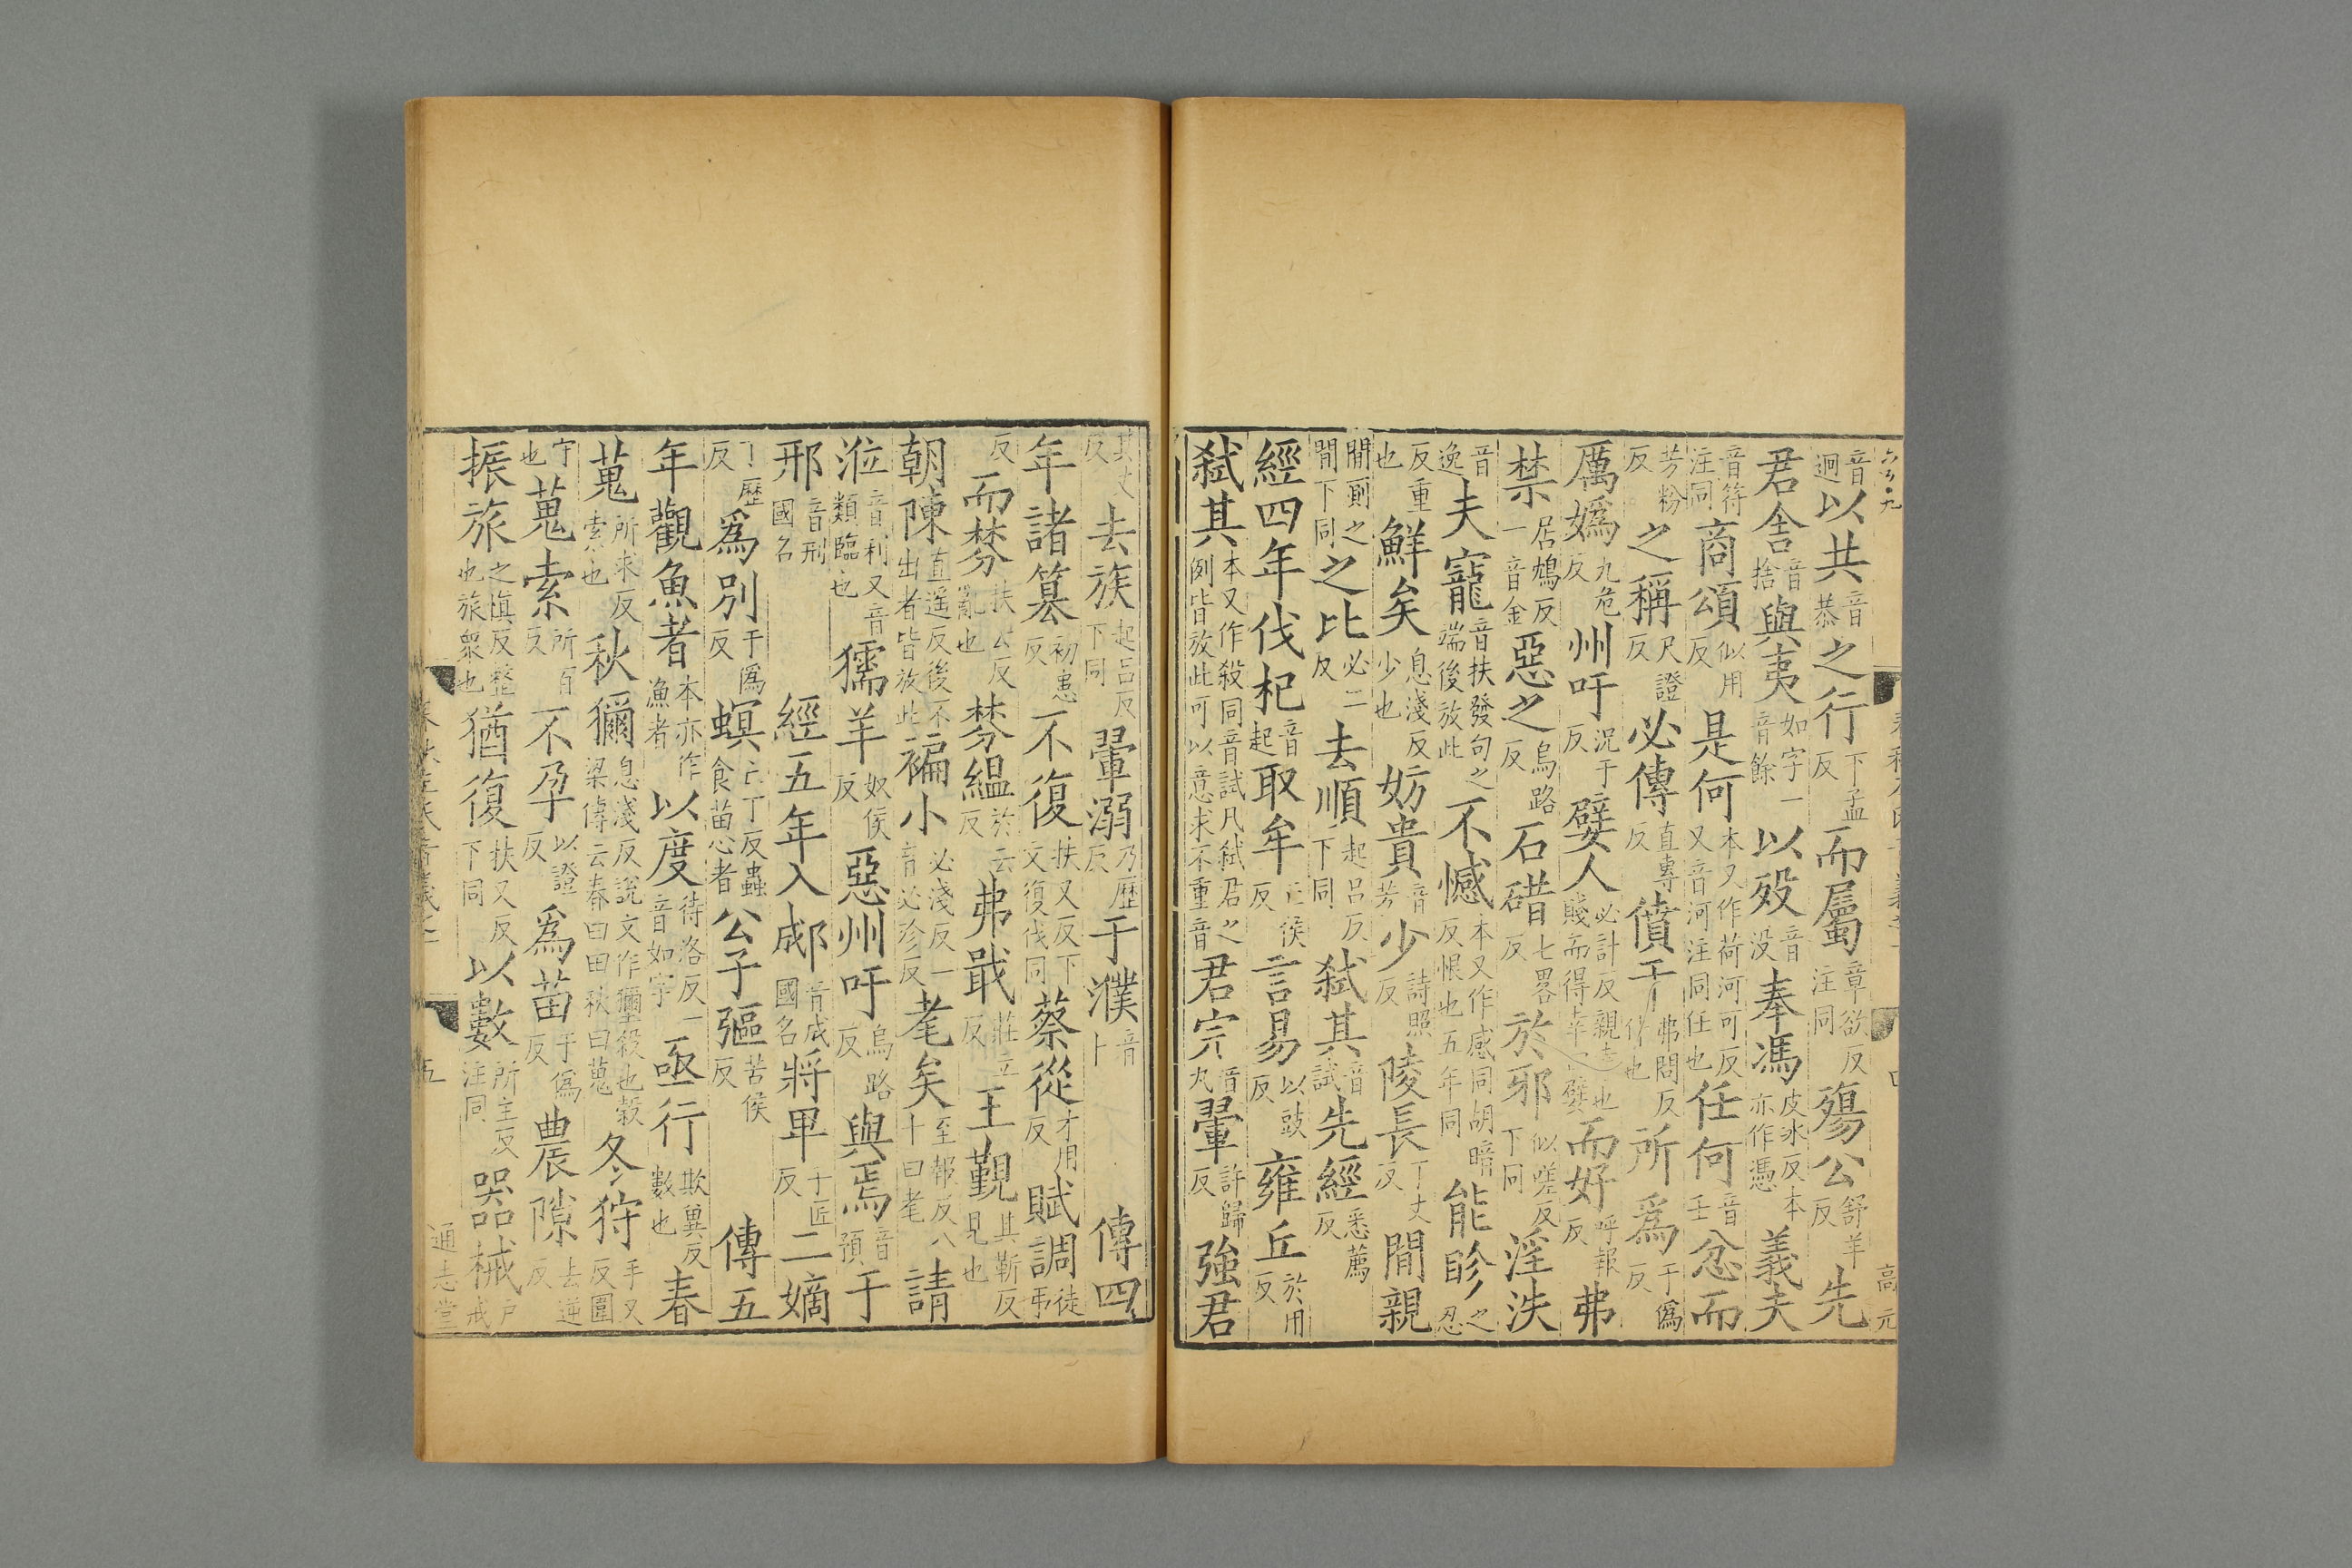 音迥以共音恭之行下孟反而屬章欲反注同殤公舒羊反先
君舍音捨與夷如字一音餘以歿音没奉馮皮冰反本亦作憑義夫
音符注同商頌似用反是何本又作荷河可反又音河注同任也任何音壬忿而
芳粉反之稱尺證反必傳直專反僨于弗問反仆也所爲于僞反
厲嬀九危反州吁况于反嬖人必計反親也賤而得幸曰嬖而好呼報反弗
禁居鴆反一音金惡之烏路反石碏七畧反於邪似嗟反下同淫泆
音逸夫寵音扶發句之端後放此不憾本又作感同胡暗反恨也五年同能眕之忍
反重也鮮矣息淺反少也妨貴音芳少詩照反陵長丁丈反間親
間廁之間下同之比必二反去順起吕反下同弑其音試先經悉薦反
經四年伐杞音起取牟亡侯反言易以豉反雍丘於用反
弑其本又作殺同音試凡弑君之例皆放此可以意求不重音君完音丸翬許歸反強君
其丈反去族起吕反下同翬溺乃歷反于濮音卜傳四
年諸篡初患反不復扶又反下文復伐同蔡從才用反賦調徒弔
反而棼扶云反亂也棼縕於云反弗戢莊立反王覲其靳反見也
朝陳直遥反後不出者皆放此褊小必淺反一音必珍反耄矣至報反八十曰耄請
涖音利又音類臨也獳羊奴侯反惡州吁烏路反與焉音預于
邢音刑國名經五年入郕音成國名將卑子匠反二嫡
丁歷反爲别于僞反螟亡丁反蟲食苗心者公子彄苦侯反傳五
年觀魚者本亦作漁者以度待洛反一音如字亟行欺冀反數也春
蒐所求反索也秋獮息淺反說文作䥷殺也榖梁傳云春曰田秋曰蒐冬狩手又反圍
守也蒐索所百反不孕以證反爲苗于僞反農隙去逆反
振旅之愼反整也旅衆也猶復扶又反下同以數所主反注同器械户戒
五
通志堂
高元